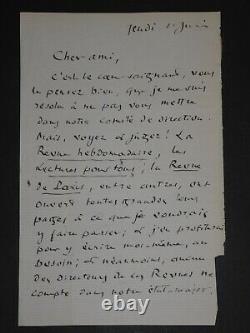 Jeudi 1er Juin
Cher ami,
C'est le cœur saignant, vous
le pensez bien, que je me suis
résolu à ne pas vous mettre
dans notre comité de direction.
Mais, voyez et jugez! La
Revue hebdomadaire, les
Lectures pour tous, la Revue
de Paris, entre autres, ont
ouvert toutes grandes leurs
pages à ce que je voudrais
y faire passer; et j'en profiterai
pour y écrire moi-même, au
besoin; et néanmoins, aucun
des directeurs de ces Revues ne
compte dans notre état-major.
©